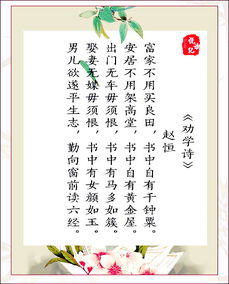 《劝学诗》
赵恒
富家不用买良田，书中自有千钟粟。
安居不用架高堂，书中自有黄金屋。
出门无车毋须恨，书中有马多如簇。
娶妻无媒毋须恨，书中有女颜如玉。
男儿欲遂平生志，勤向窗前读六经。